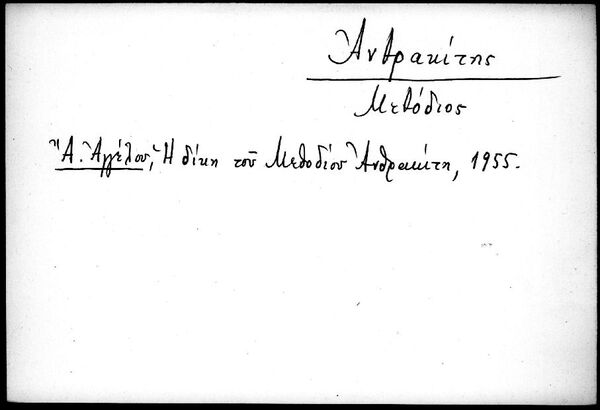 Ἀνθρακίτης
Μεθόδιος
Ἄ. Ἀγγέλου, Ἡ δίκη τοῦ Μεθοδίου Ἀνθρακίτη, 1955.